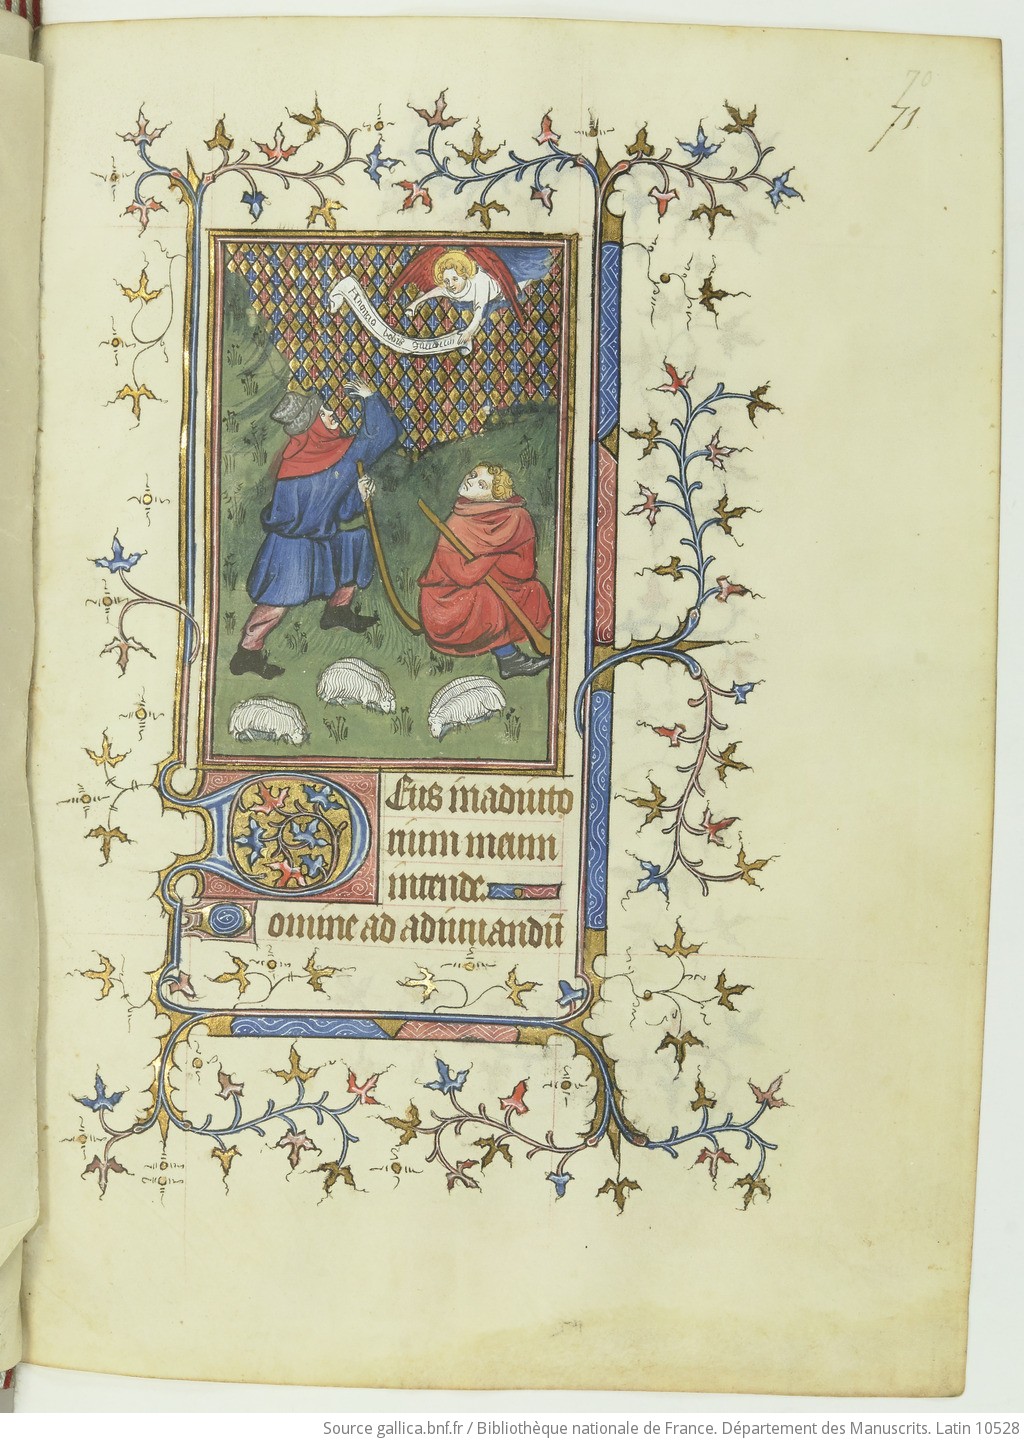 70
71
Anoncio vobis gaudium
Deus in adiuto
rium meum
intende.
Domine ad adiuuandū
Source gallica.bnf.fr / Bibliothèque nationale de France. Département des Manuscrits. Latin 10528